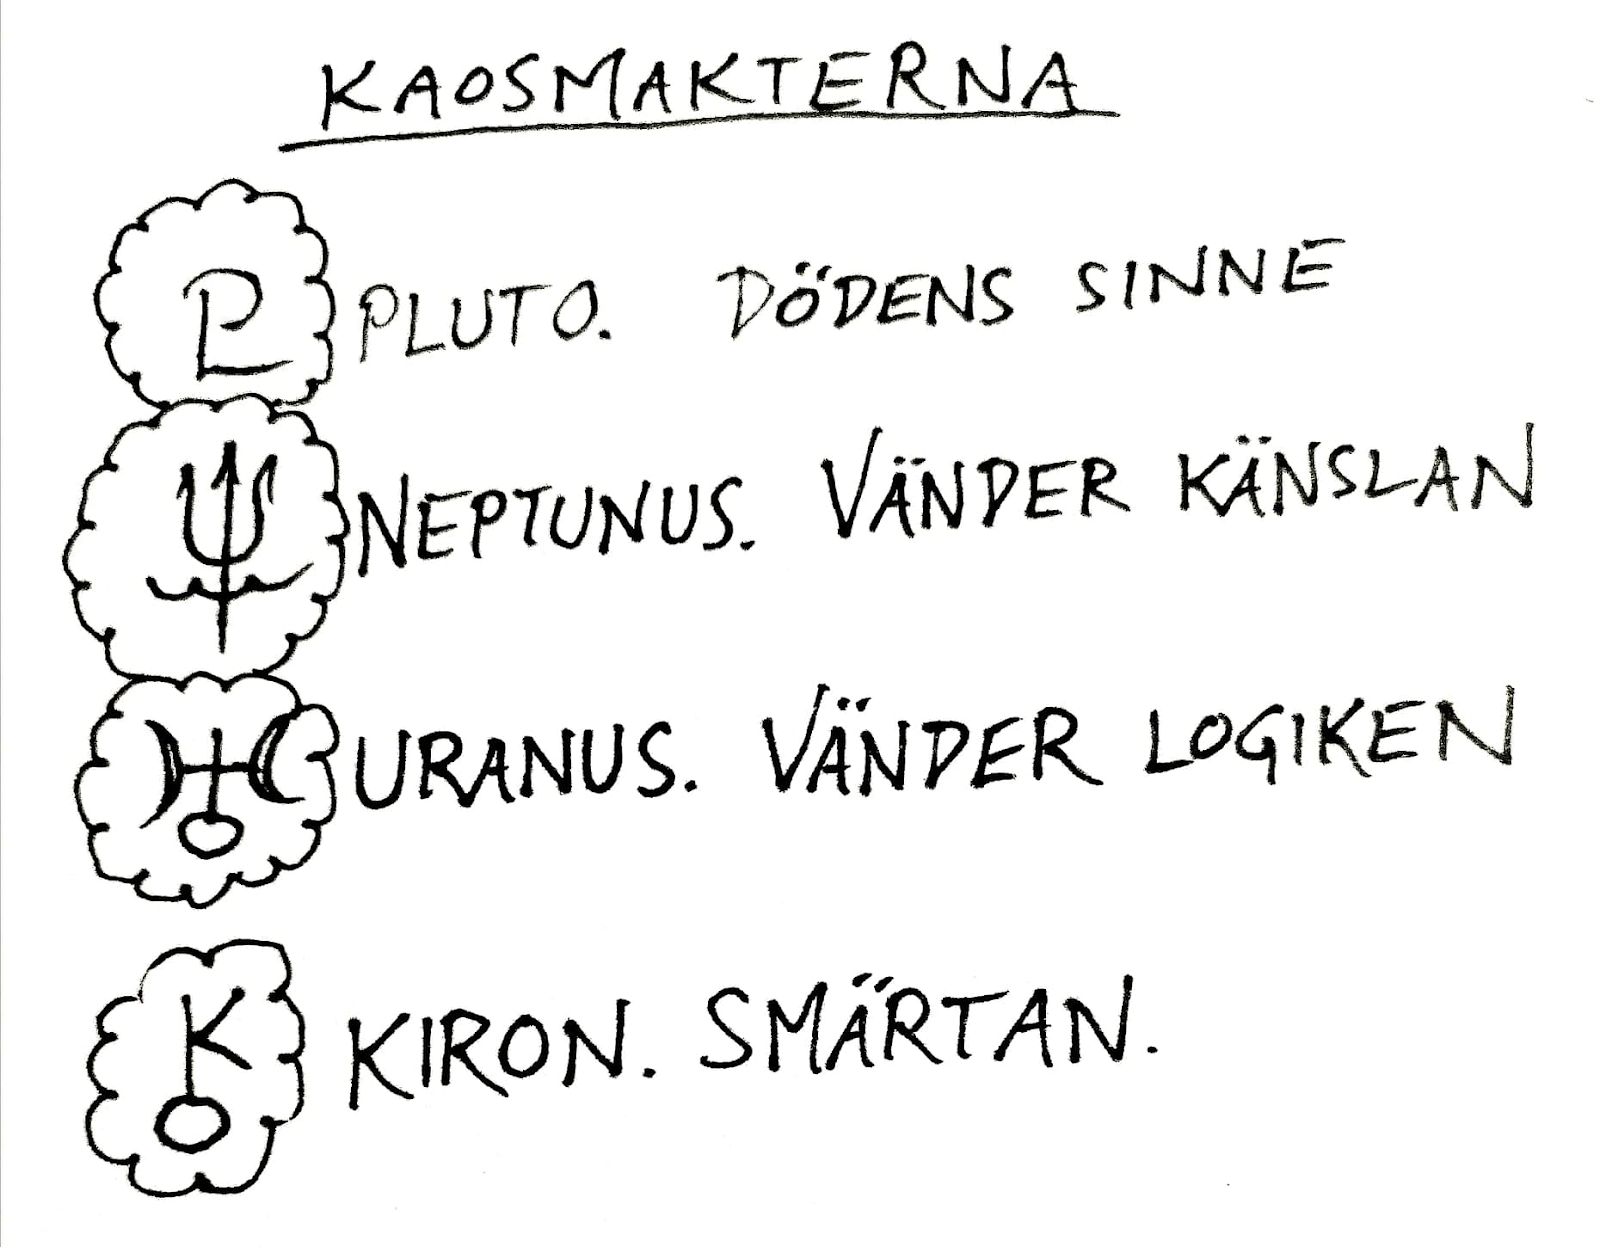 KAOSMAKTERNA
PLUTO. DÖDENS SINNE
NEPTUNUS. VÄNDER KÄNSLAN
URANUS. VÄNDER LOGIKEN
KIRON. SMÄRTAN.